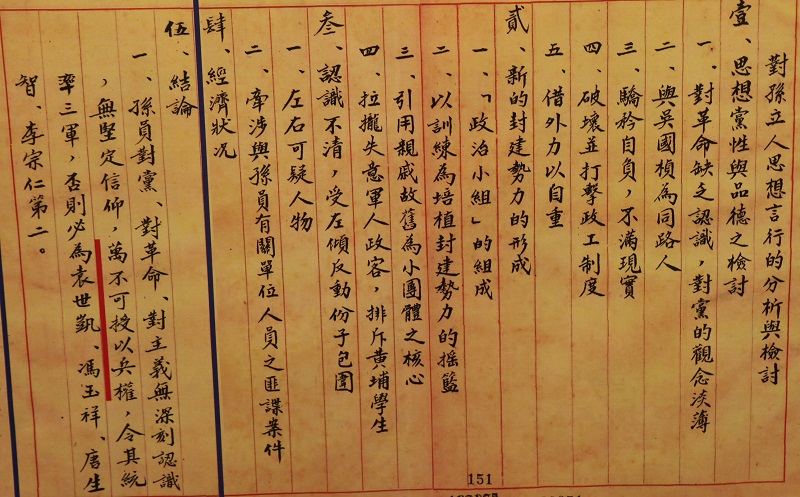 對孫立人思想言行的分析與檢討
壹、思想黨性與品德之檢討
一、對革命缺乏認識，對黨的觀念淡薄
二、與吳國楨為同路人
三、驕矜自負，不滿現實
四、破壞並打擊政工制度
五、借外力以自重
貳、新的封建勢力的形成
一、「政治小組」的組成
二、以訓練為培植封建勢力的搖籃
三、引用親戚故舊為小團體之核心
四、拉攏失意軍人政客，排斥黃埔學生
叁、認識不清，受左傾反動份子包圍
一、左右可疑人物
二、牽涉與孫員有關單位人員之匪諜案件
肆、經濟狀況
伍、結論
一、孫員對黨、對革命、對主義無深刻認識
，無堅定信仰，萬不可授以兵權，令其統
率三軍，否則必為袁世凱、馮玉祥、唐生
智、李宗仁第二。
151